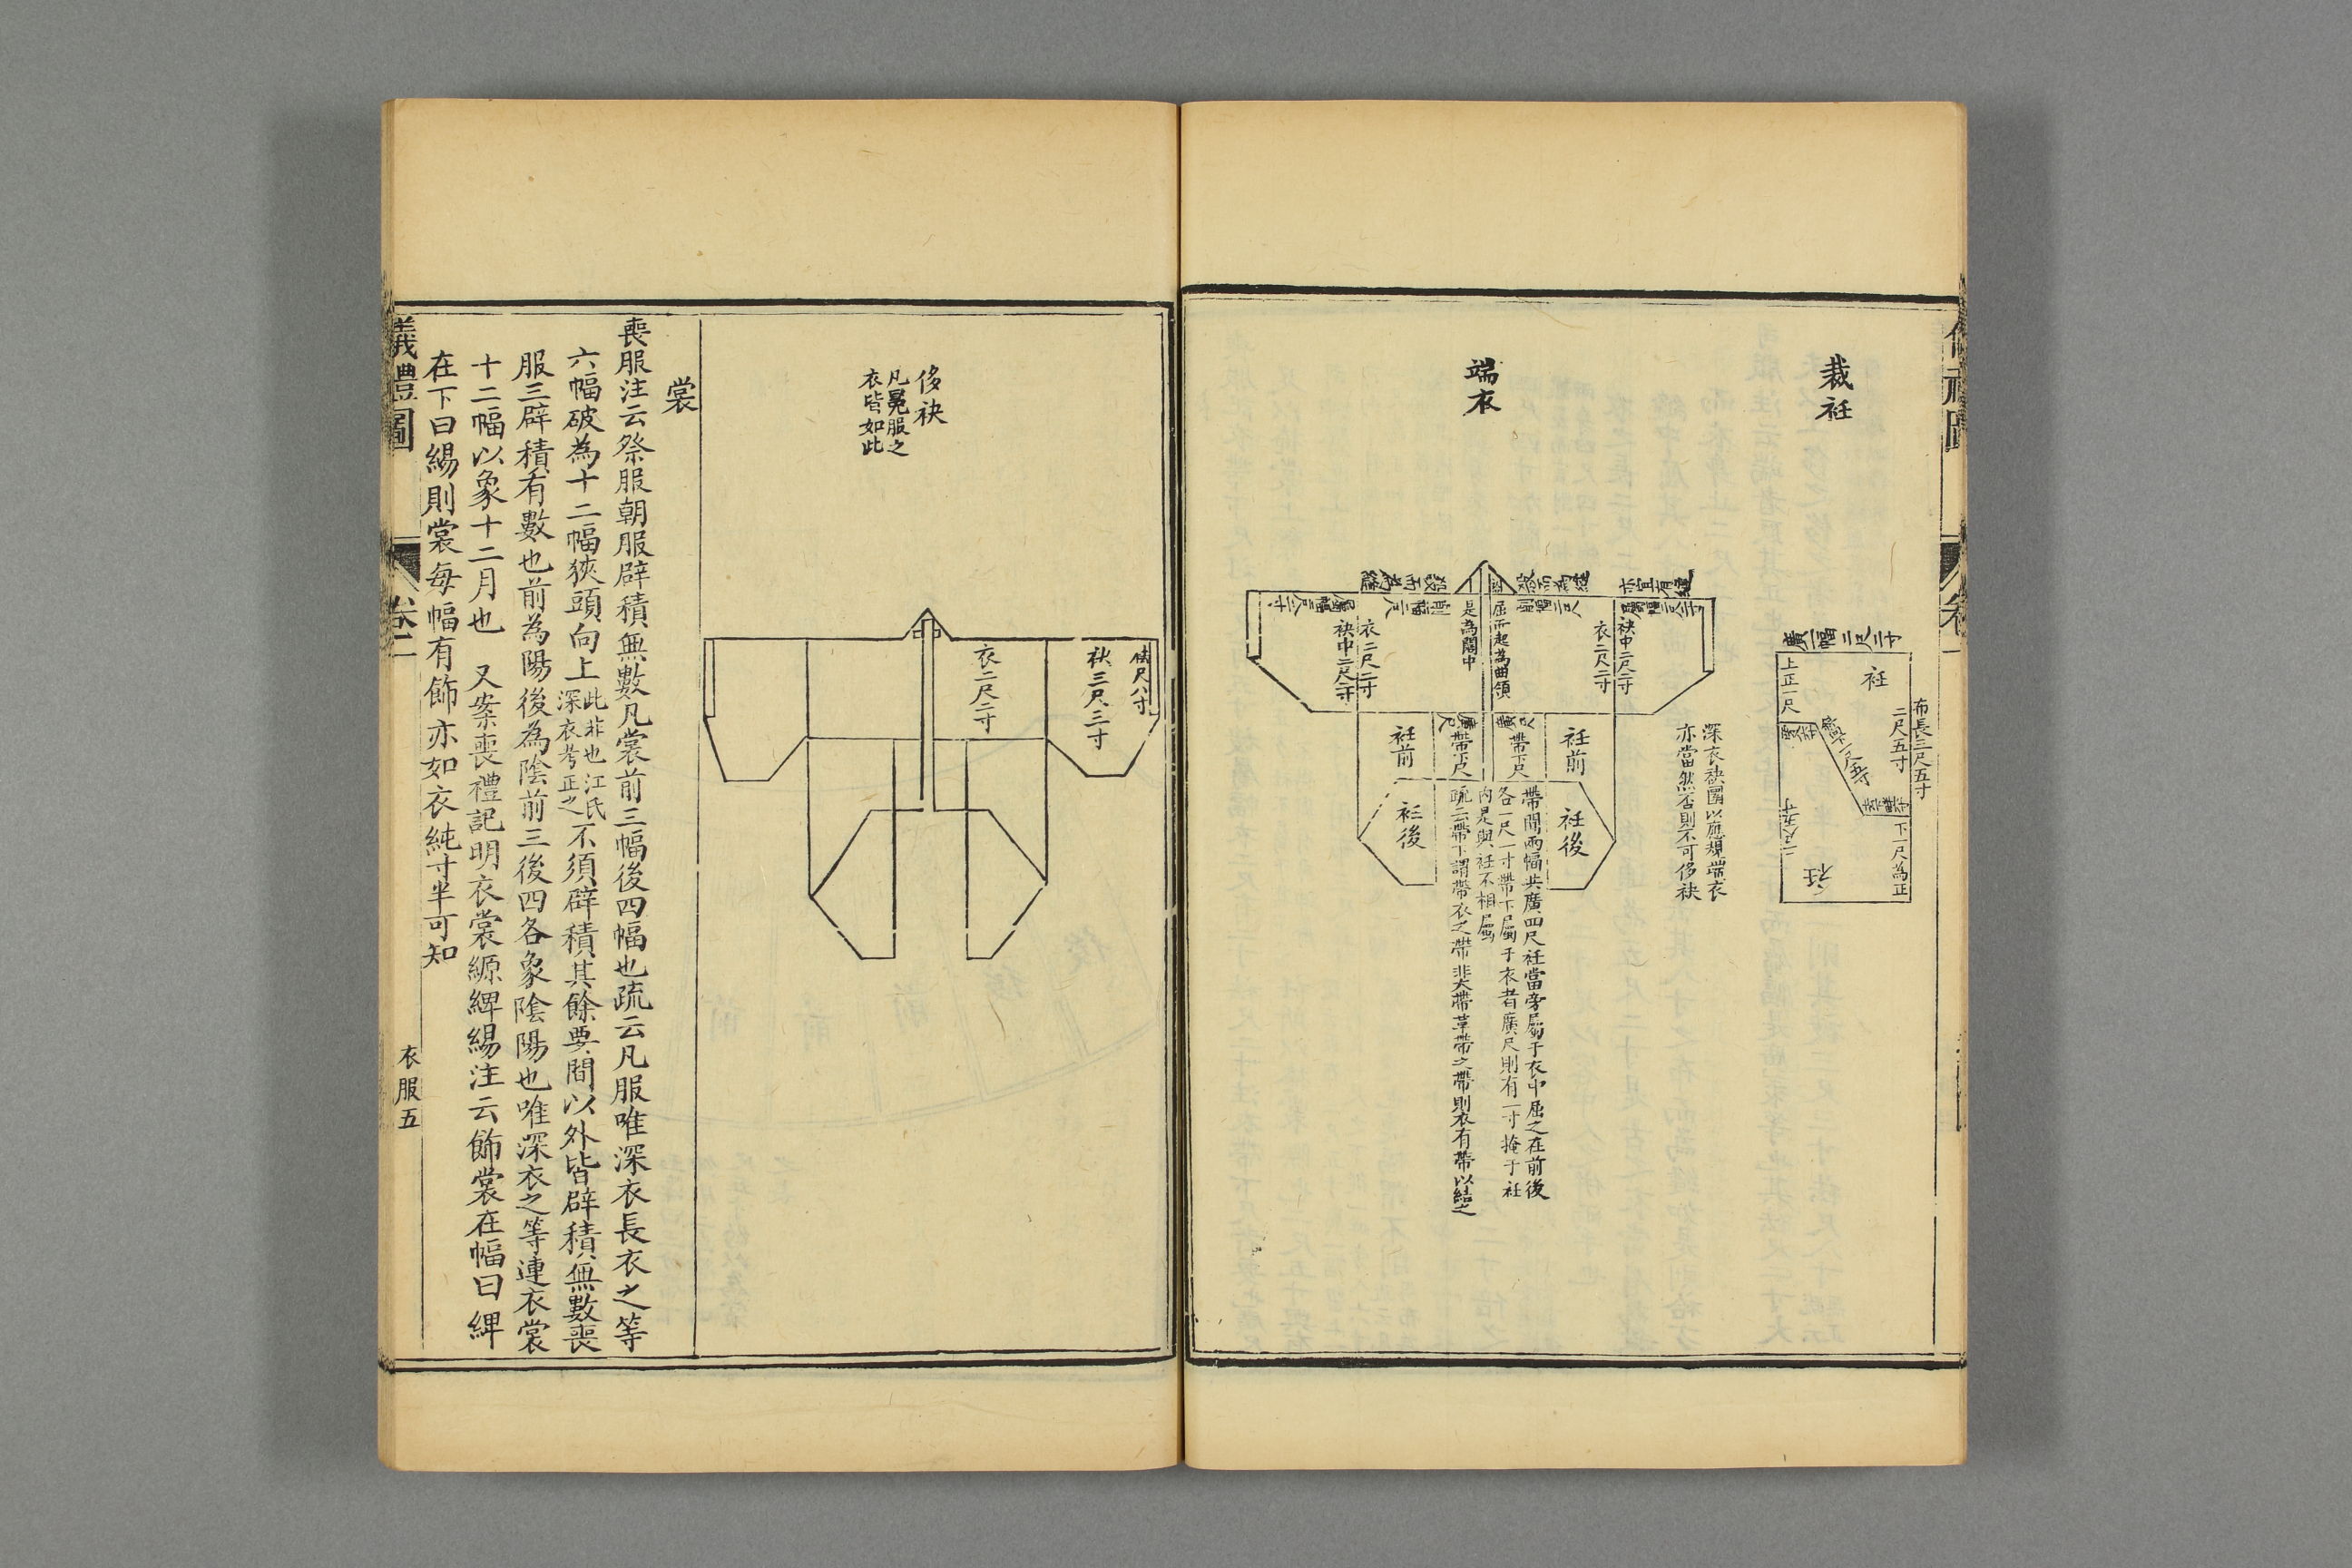 裁衽
廣幅二尺二寸
布長三尺五寸
衽
二尺五寸
上正一尺
下一尺為正
衽
深衣袂圜以應規端衣
亦當然否則不可侈袂
端衣
衣二尺二寸
袂中二尺二寸
屈而起為曲領
是為闊中
衣二尺二寸
袂中二尺二寸
衽前
帶下尺
帶下尺
衽前
衽後
衽後
帶間兩幅共廣四尺衽當旁屬于衣中屈之在前後
各一尺一寸帶下屬于衣者廣尺則有一寸掩于衽
內是與衽不相屬
疏云帶下謂帶衣之帶非大帶革帶之帶則衣有帶以結之
侈袂
凡冕服之
衣皆如此
袪尺八寸
袂三尺三寸
衣二尺二寸
裳
喪服注云祭服朝服辟積無數凡裳前三幅後四幅也疏云凡服唯深衣長衣之等
六幅破為十二幅狹頭向上此非也江氏深衣考正之不須辟積其餘要間以外皆辟積無數喪
服三辟積有數也前為陽後為陰前三後四各象陰陽也唯深衣之等連衣裳
十二幅以象十二月也 又案喪禮記明衣裳縓綼緆注云飾裳在幅曰綼
在下曰緆則裳每幅有飾亦如衣純寸半可知
儀禮圖
卷二
衣服五